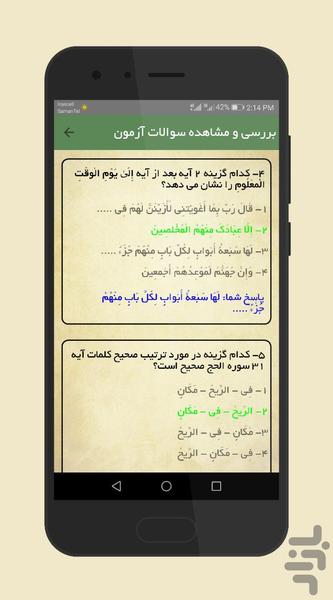 Irancell
SamanTel
42% 2:14 PM
بررسی و مشاهده سوالات آزمون
۴- کدام گزینه ۲ آیه بعد از آیه إِلَىٰ يَوْمِ الْوَقْتِ
الْمَعْلُومِ را نشان می دهد؟
۱- قَالَ رَبِّ بِمَا أَغْوَيْتَنِي لَأُزَيِّنَنَّ لَهُمْ فِي .....
۲- إِلَّا عِبَادَكَ مِنْهُمُ الْمُخْلَصِينَ
۳- لَهَا سَبْعَةُ أَبْوَابٍ لِكُلِّ بَابٍ مِنْهُمْ جُزْءٌ .....
۴- وَإِنَّ جَهَنَّمَ لَمَوْعِدُهُمْ أَجْمَعِينَ
پاسخ شما: لَهَا سَبْعَةُ أَبْوَابٍ لِكُلِّ بَابٍ مِنْهُمْ
جُزْءٌ .....
۵- کدام گزینه در مورد ترتیب صحیح کلمات آیه
۳۱ سوره الحج صحیح است؟
۱- فِي - الرِّيحُ - مَكَانٍ
۲- الرِّيحُ - فِي - مَكَانٍ
۳- مَكَانٍ - فِي - الرِّيحُ
۴- فِي - مَكَانٍ - الرِّيحُ
بازار